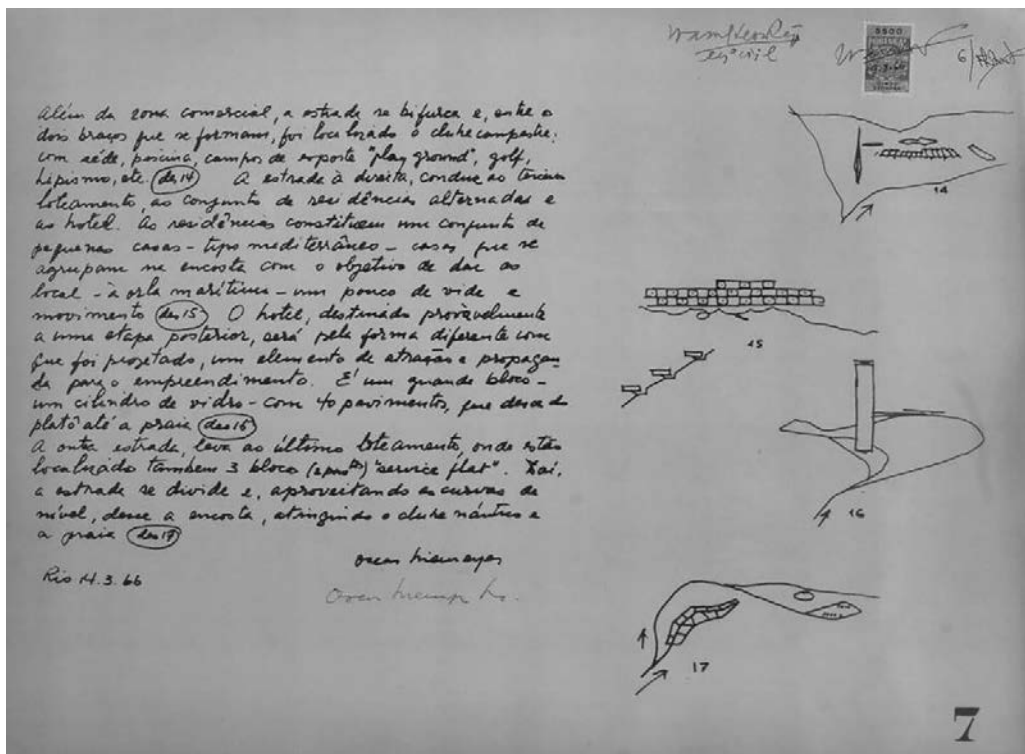 Além da zona comercial, a estrada se bifurca e, entre o
dois braços que se formam, foi localizado o clube campestre:
com séde, piscina, campos de esporte "play ground", golf,
hipismo, etc. (des 14) A estrada à direita, conduz ao terceiro
loteamento, ao conjunto de residências alternadas e
ao hotel. As residências constituem um conjunto de
pequenas casas - tipo mediterrâneo - casas que se
agrupam na encosta com o objetivo de dar ao
local - à orla marítima - um pouco de vida e
movimento (des 15) O hotel, destinado provàvelmente
a uma etapa posterior, será pela forma diferente com
que foi projetado, um elemento de atração e propagan-
da para o empreendimento. É um grande bloco -
um cilindro de vidro - com 40 pavimentos, que desce do
platô até a praia (des 16)
A outra estrada, leva ao último loteamento, onde estão
localizado tambem 3 bloco "service flat". Daí,
a estrada se divide e, aproveitando as curvas de
nível, desce a encosta, atingindo o clube náutico e
a praia (des 17)
oscar niemeyer
Rio 14.3.66
14
15
16
17
7